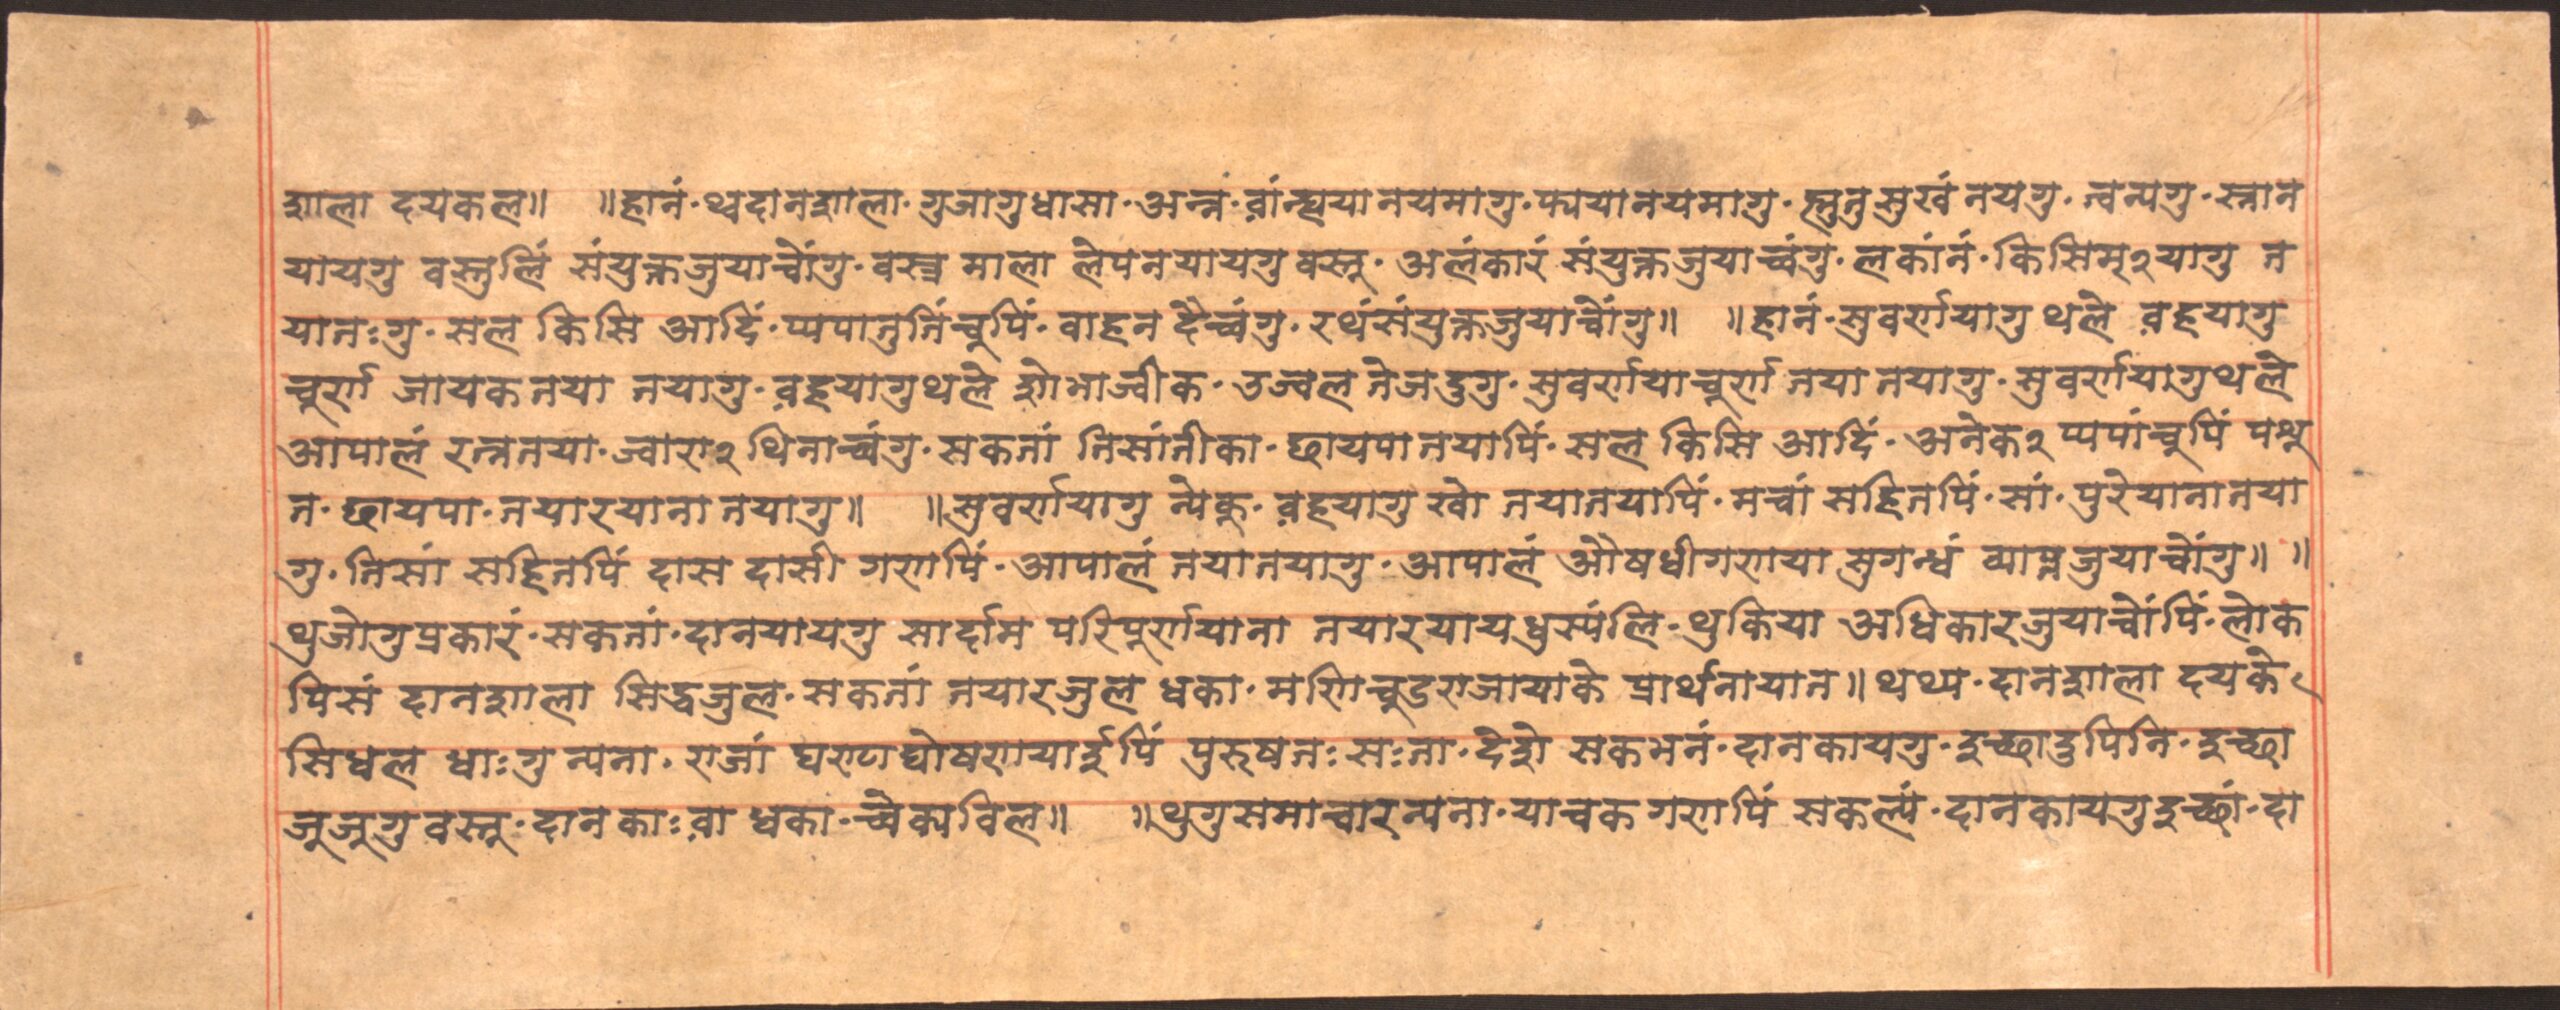 शाला दयकल॥ ॥हानं·थ्वदानशाला·गुजागुधासा·अन्नं·व़ांन्ह्ययानयमागु·फ्ययानयमागु·ह्लुतुसुखं नयगु·त्वन्यगु·स्नान
यायगु वस्तुलिं संयुक्तजुयाचोंगु·वस्त्र माला लेपनयायगु वस्तु·अलंकारं संयुक्तजुयाच्वंगु·लकांनं·किसिम्२यागु त
यातःगु·सल किसि आदिं·प्यपातुतिंचुपिं·वाहन दैच्वंगु·रथंसंयुक्तजुयाचोंगु॥ ॥हानं·सुवर्णयागु थले व़हयागु
चुर्णा जायकतया तयागु·व़हयागुथले शोभाज्वीक·उज्वल तेजदुगु·सुवर्णयाचुर्ण तया तयागु·सुवर्णयागुथले
आपालं रत्नतया·ज्वारा२ थिनाच्वंगु·सकतां तिसांतीका·छायपा तयापिं·सल किसि आदिं·अनेक२ प्यपांचुपिं पशु
त·छायपा·तयारयाना तयागु॥ ॥सुवर्णयागु न्येकु·व़हयागु खो तयातयापिं·मचां सहितपिं·सां·पुरेयानातया
गु·तिसां सहितपिं दास दासी गणपिं·आपालं तयातयागु·आपालं औषधीगणया सुगन्धं व्याप्तजुयाचोंगु॥ ॥
थुजोगुप्रकारं·सकतां·दानयायगु सार्दाम परिपूर्णयाना तयारयायधुस्यंलि·थुकिया अधिकारजुयाचोंपिं·लोक
पिसं दानशाला सिद्धजुल·सकतां तयारजुल धका·मणिचुडराजायाके प्रार्थनायात॥थथ्य·दानशाला दयके
सिधल धाःगु न्यना·राजां घण्ण्टघोषणयार्इपिं पुरुषतः सःता·देशे सकभनं·दानकायगु·इच्छादुपिनि·इच्छा
जूजूगु वस्तु·दानकाःव़ा धका·च्वेक्यविल॥ ॥थुगुसमाचारन्यना·याचक गणपिं सकल्यं·दानकायगुइच्छां·दा